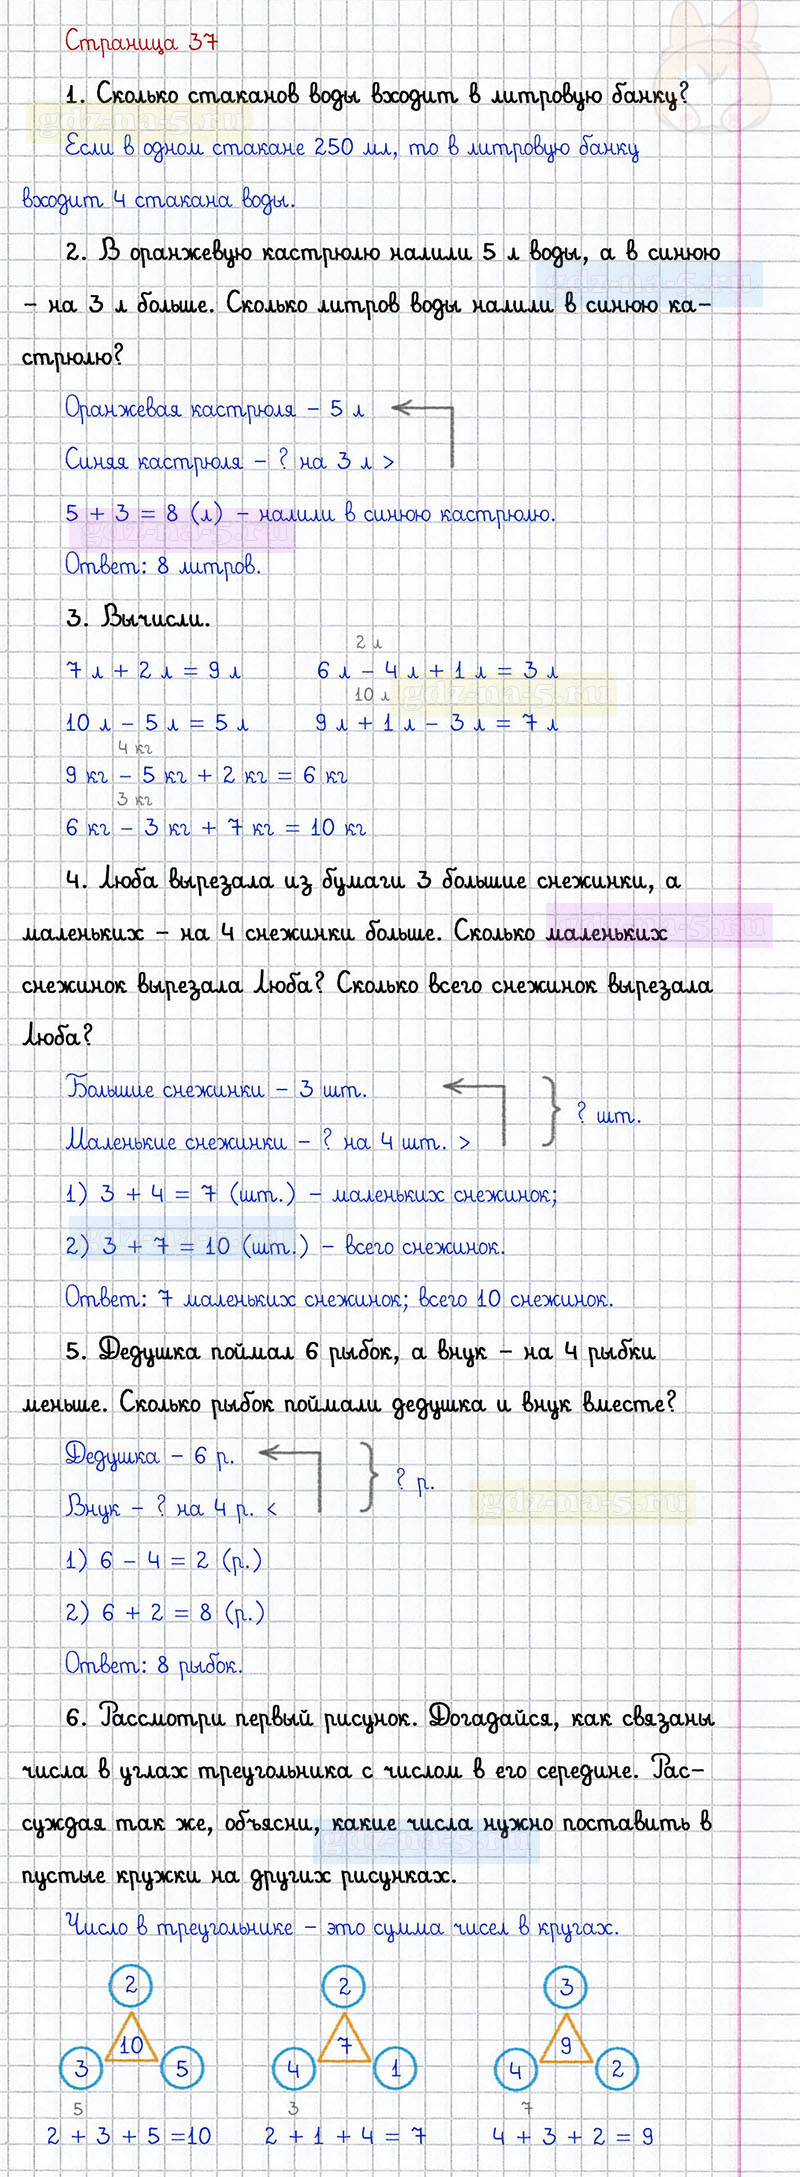 Страница 37
1. Сколько стаканов воды входит в литровую банку?
gdz-na-5.ru
Если в одном стакане 250 мл, то в литровую банку
входит 4 стакана воды.
2. В оранжевую кастрюлю налили 5 л воды, а в синюю
gdz-na-5.ru
– на 3 л больше. Сколько литров воды налили в синюю ка-
стрюлю?
Оранжевая кастрюля – 5 л
Синяя кастрюля – ? на 3 л >
5 + 3 = 8 (л) – налили в синюю кастрюлю.
gdz-na-5.ru
Ответ: 8 литров.
3. Вычисли.
2 л
7 л + 2 л = 9 л 6 л – 4 л + 1 л = 3 л
10 л gdz-na-5.ru
10 л – 5 л = 5 л 9 л + 1 л – 3 л = 7 л
4 кг
9 кг – 5 кг + 2 кг = 6 кг
3 кг
6 кг – 3 кг + 7 кг = 10 кг
4. Люба вырезала из бумаги 3 большие снежинки, а
маленьких – на 4 снежинки больше. Сколько маленьких
gdz-na-5.ru
снежинок вырезала Люба? Сколько всего снежинок вырезала
Люба?
Большие снежинки – 3 шт.
? шт.
Маленькие снежинки – ? на 4 шт. >
1) 3 + 4 = 7 (шт.) – маленьких снежинок;
gdz-na-5.ru
2) 3 + 7 = 10 (шт.) – всего снежинок.
Ответ: 7 маленьких снежинок; всего 10 снежинок.
5. Дедушка поймал 6 рыбок, а внук – на 4 рыбки
меньше. Сколько рыбок поймали дедушка и внук вместе?
Дедушка – 6 р.
? р.
Внук – ? на 4 р. <
gdz-na-5.ru
1) 6 – 4 = 2 (р.)
2) 6 + 2 = 8 (р.)
Ответ: 8 рыбок.
6. Рассмотри первый рисунок. Догадайся, как связаны
числа в углах треугольника с числом в его середине. Рас-
суждая так же, объясни, какие числа нужно поставить в
gdz-na-5.ru
пустые кружки на других рисунках.
Число в треугольнике – это сумма чисел в кругах.
2 2 3
10 7 9
3 5 4 1 4 2
5 3 7
2 + 3 + 5 =10 2 + 1 + 4 = 7 4 + 3 + 2 = 9